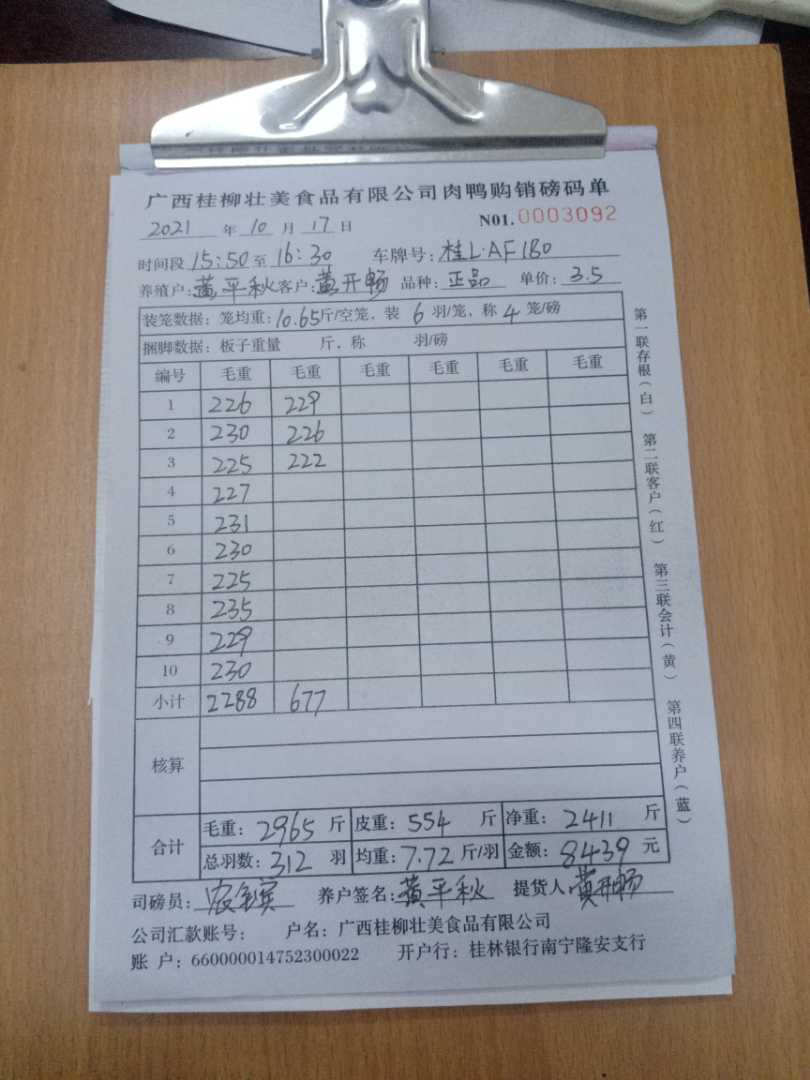 广西桂柳壮美食品有限公司肉鸭购销磅码单
2021 年 10 月 17 日 N01.0003092
时间段 15:50 至 16:30 车牌号: 桂L·AF180
养殖户: 黄平秋 客户: 黄开畅 品种: 正品 单价: 3.5
装笼数据: 笼均重: 10.65 斤/空笼, 装 6 羽/笼, 称 4 笼/磅
捆脚数据: 板子重量 斤, 称 羽/磅
编号 毛重 毛重 毛重 毛重 毛重 毛重
1 226 229
2 230 226
3 225 222
4 227
5 231
6 230
7 225
8 235
9 229
10 230
小计 2288 677
核算
合计
毛重: 2965 斤 皮重: 554 斤 净重: 2411 斤
总羽数: 312 羽 均重: 7.72 斤/羽 金额: 8439 元
司磅员: 养户签名: 黄平秋 提货人 黄开畅
公司汇款账号: 户名: 广西桂柳壮美食品有限公司
账 户: 660000014752300022 开户行: 桂林银行南宁隆安支行
第一联存根(白) 第二联客户(红) 第三联会计(黄) 第四联养户(蓝)